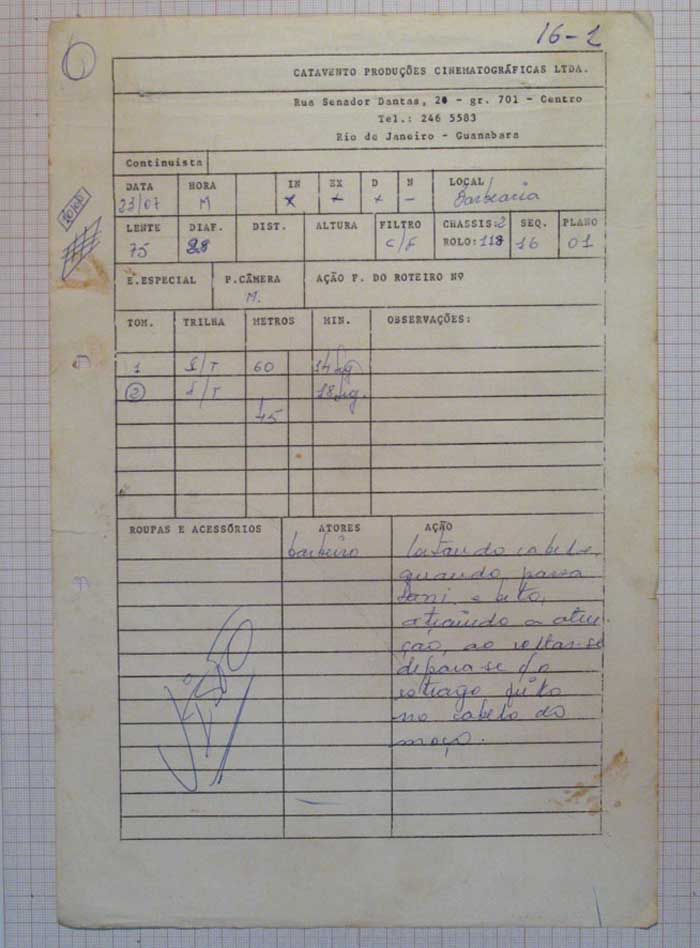 16-1
CATAVENTO PRODUÇÕES CINEMATOGRÁFICAS LTDA.
Rua Senador Dantas, 20 - gr. 701 - Centro
Tel.: 246 5583
Rio de Janeiro - Guanabara
Continuista
DATA HORA IN EX D N LOCAL
23/07 M x + + - Barbearia
LENTE DIAF. DIST. ALTURA FILTRO CHASSIS: 2 SEQ. PLANO
75 28 C/F ROLO: 118 16 01
E.ESPECIAL P.CÂMERA AÇÃO F. DO ROTEIRO Nº
M.
TOM. TRILHA METROS MIN. OBSERVAÇÕES:
1 S/T 60 14 sg
2 S/T 18 sg.
45
ROUPAS E ACESSÓRIOS ATORES AÇÃO
barbeiro cortando cabelo,
quando passa
e
atraindo a aten-
ção, ao voltar-se
depara-se do
feito
no cabelo do
moço.
VISÃO